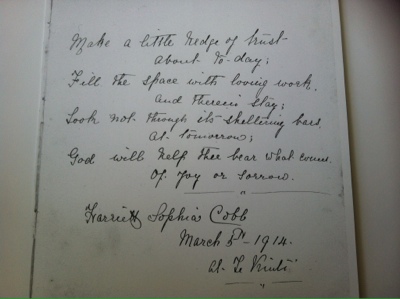 Make a little hedge of trust
about to-day;
Fill the space with loving work,
And therein stay;
Look not through its sheltering bars
At tomorrow;
God will help thee bear what comes
Of Joy or sorrow.
Harriett Sophia Cobb
March 5th 1914.
At Te Kinti